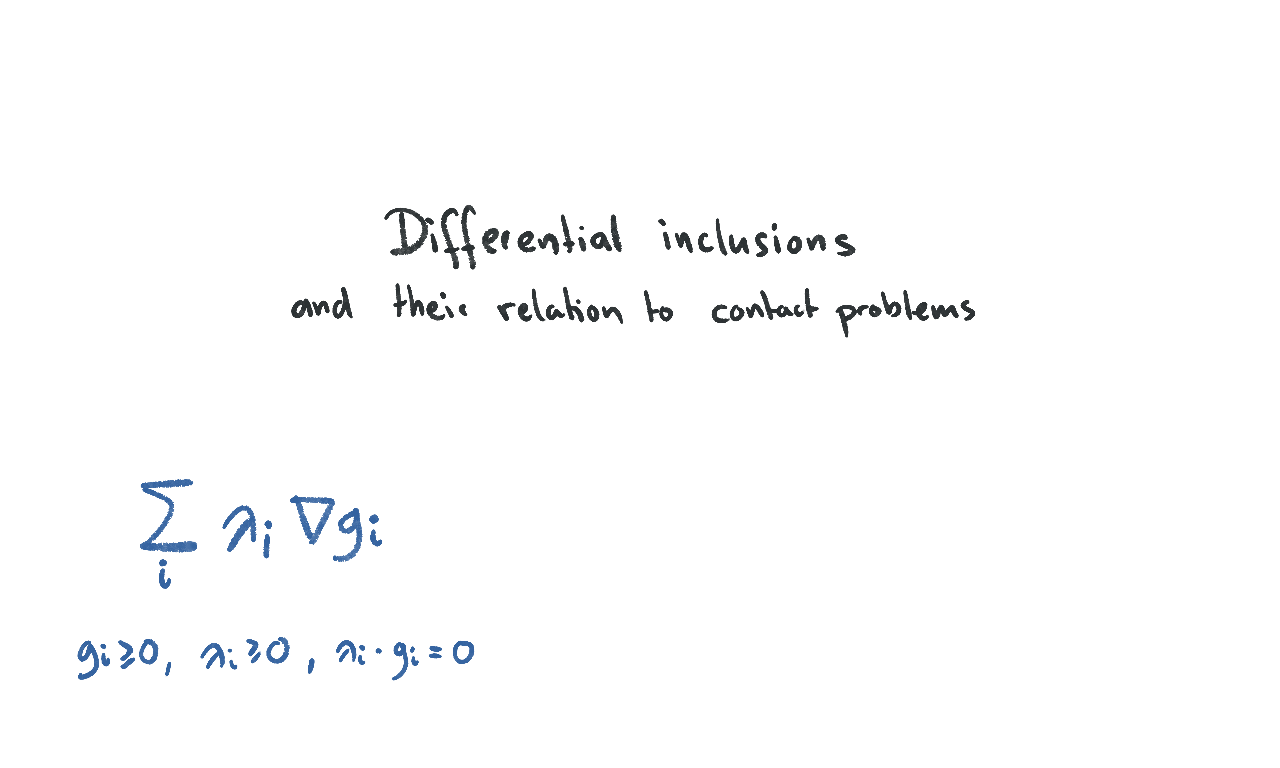 Differential inclusions
and their relation to contact problems
∑ λi ∇gi
i
gi ≥ 0, λi ≥ 0, λi · gi = 0